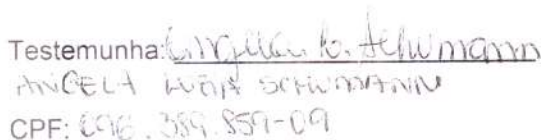 Testemunha: Angela L. Schumann
ANGELA LUCIA SCHUMANN
CPF: 096.389.859-09